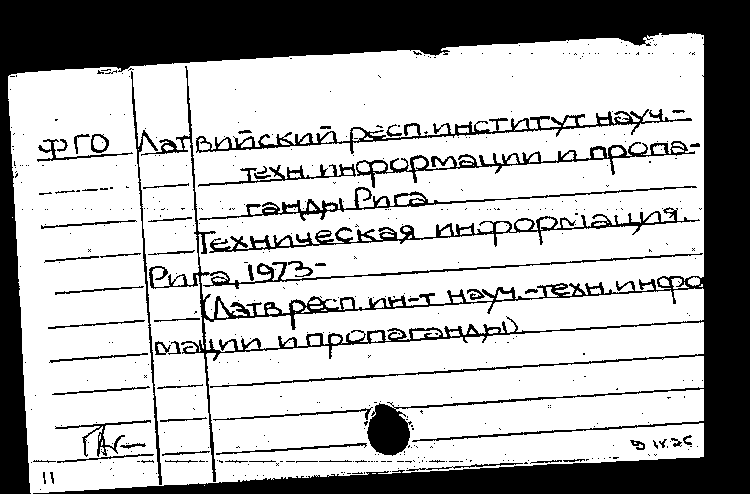 ФГО Латвийский респ. институт науч.-
техн. информации и пропа-
ганды Рига.
Техническая информация.
Рига, 1973-
(Латв. респ. ин-т науч.-техн. инфо
мации и пропаганды).
11